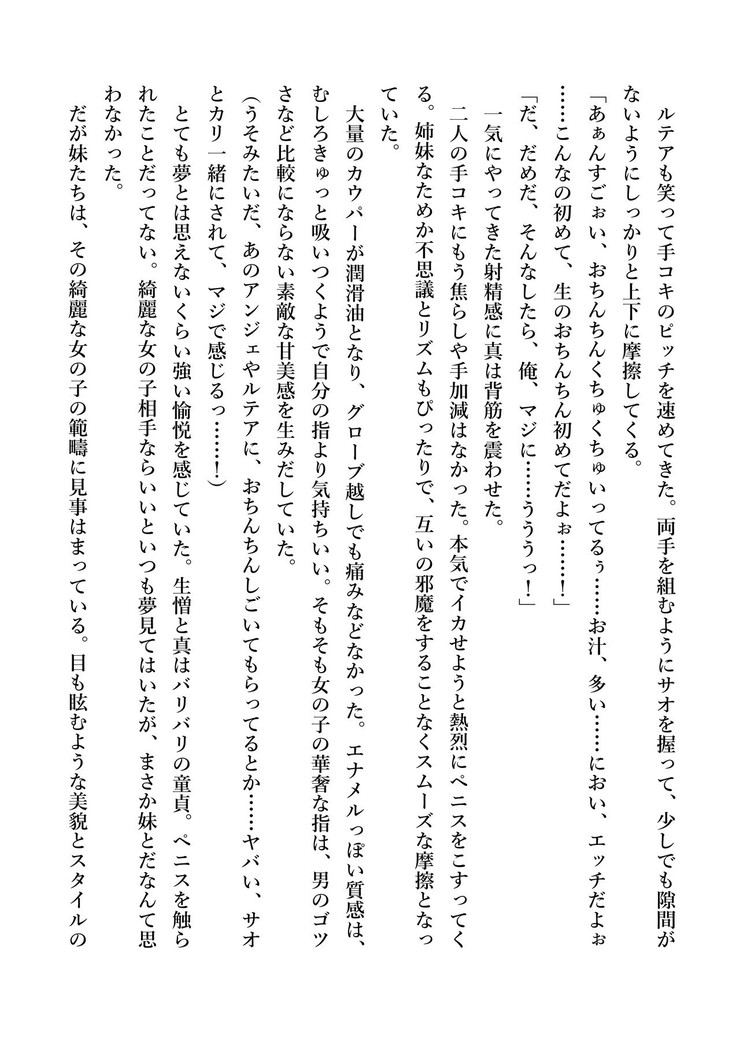 ルテアも笑って手コキのピッチを速めてきた。両手を組むようにサオを握って、少しでも隙間が
ないようにしっかりと上下に摩擦してくる。
「あぁんすごぉい、おちんちんくちゅくちゅいってるぅ……お汁、多い……におい、エッチだよぉ
……こんなの初めて、生のおちんちん初めてだよぉ……！」
「だ、だめだ、そんなしたら、俺、マジに……うううっ！」
一気にやってきた射精感に真は背筋を震わせた。
二人の手コキにもう焦らしや手加減はなかった。本気でイカせようと熱烈にペニスをこすってく
る。姉妹なためか不思議とリズムもぴったりで、互いの邪魔をすることなくスムーズな摩擦となっ
ていた。
大量のカウパーが潤滑油となり、グローブ越しでも痛みなどなかった。エナメルっぽい質感は、
むしろきゅっと吸いつくようで自分の指より気持ちいい。そもそも女の子の華奢な指は、男のゴツ
さなど比較にならない素敵な甘美感を生みだしていた。
（うそみたいだ、あのアンジェやルテアに、おちんちんしごいてもらってるとか……ヤバい、サオ
とカリ一緒にされて、マジで感じるっ……！）
とても夢とは思えないくらい強い愉悦を感じていた。生憎と真はバリバリの童貞。ペニスを触ら
れたことだってない。綺麗な女の子相手ならいいといつも夢見てはいたが、まさか妹とだなんて思
わなかった。
だが妹たちは、その綺麗な女の子の範疇に見事はまっている。目も眩むような美貌とスタイルの